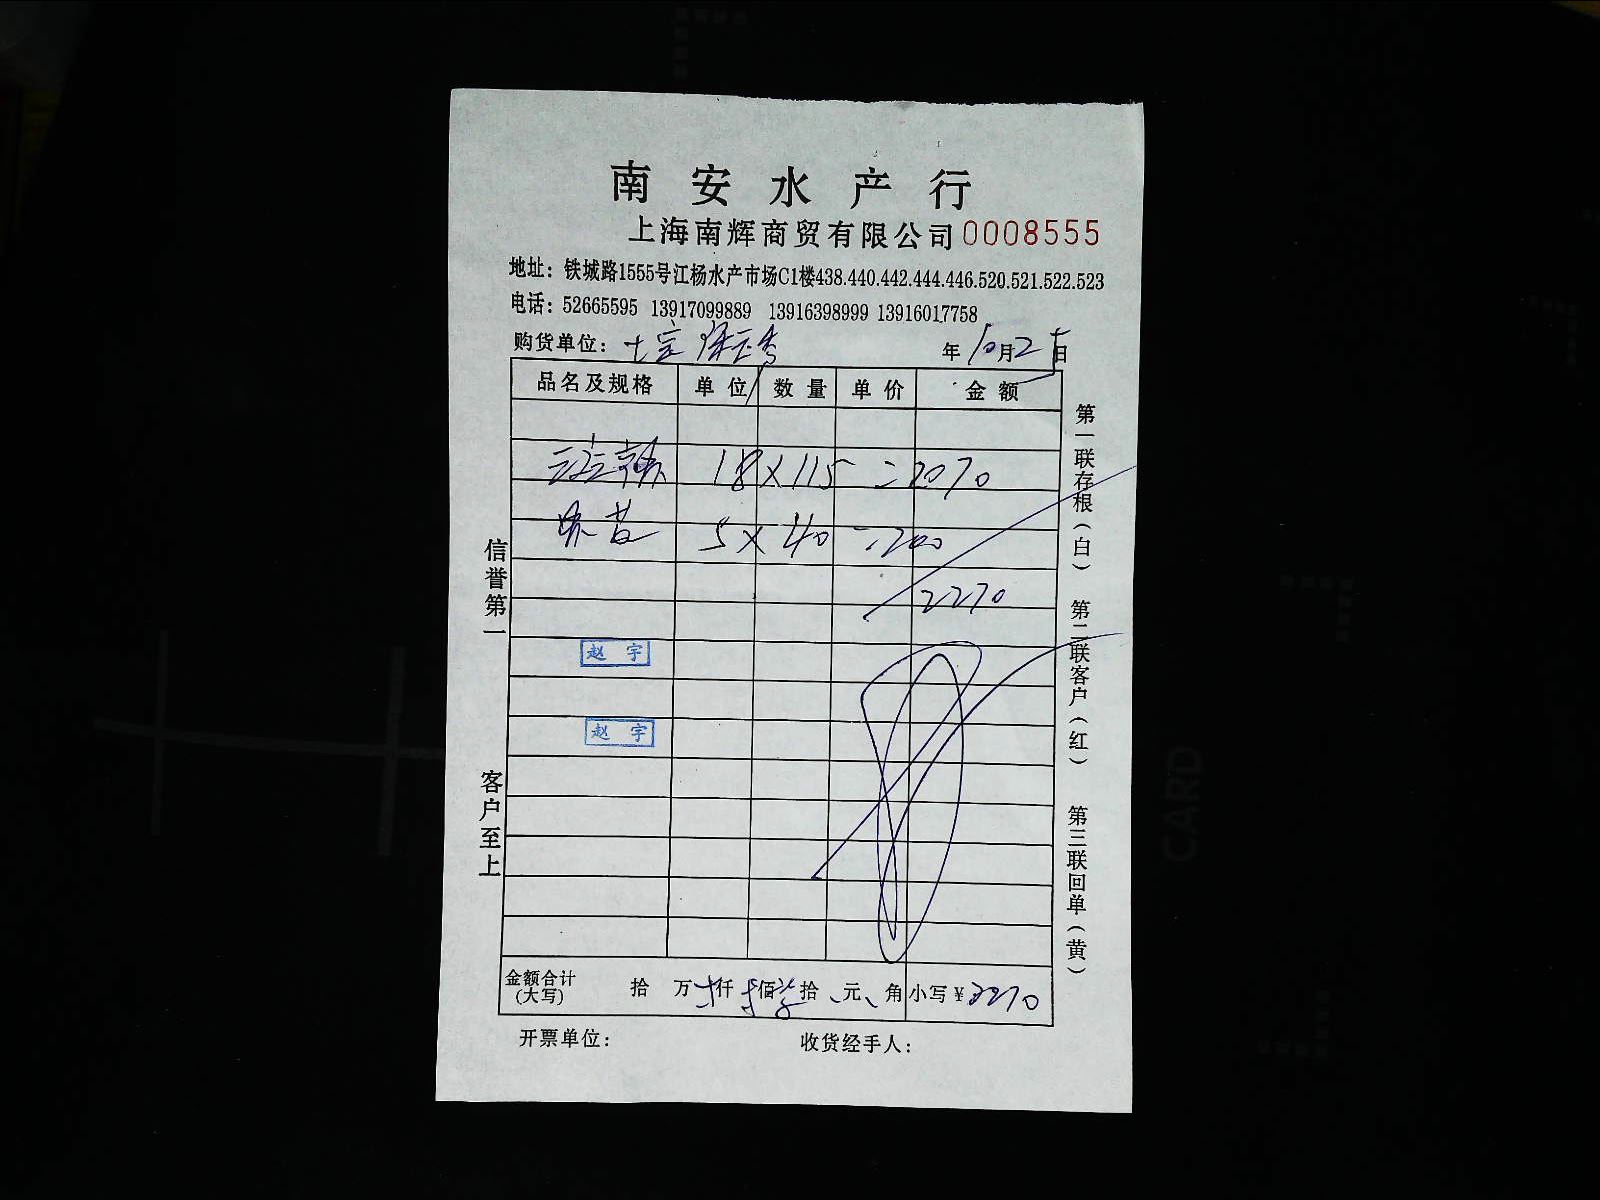 南安水产行
上海南辉商贸有限公司 0008555
地址：铁城路1555号江杨水产市场C1楼438.440.442.444.446.520.521.522.523
电话：52665595 13917099889 13916398999 13916017758
购货单位： 年10月2 日
品名及规格 单位 数量 单价 金额
18×115=2070
5×40=200
2270
赵宇
赵宇
金额合计(大写) 拾 万 仟 佰 拾 元 角 小写￥2270
开票单位： 收货经手人：
信誉第一
客户至上
第一联存根(白)
第二联客户(红)
第三联回单(黄)
CARD